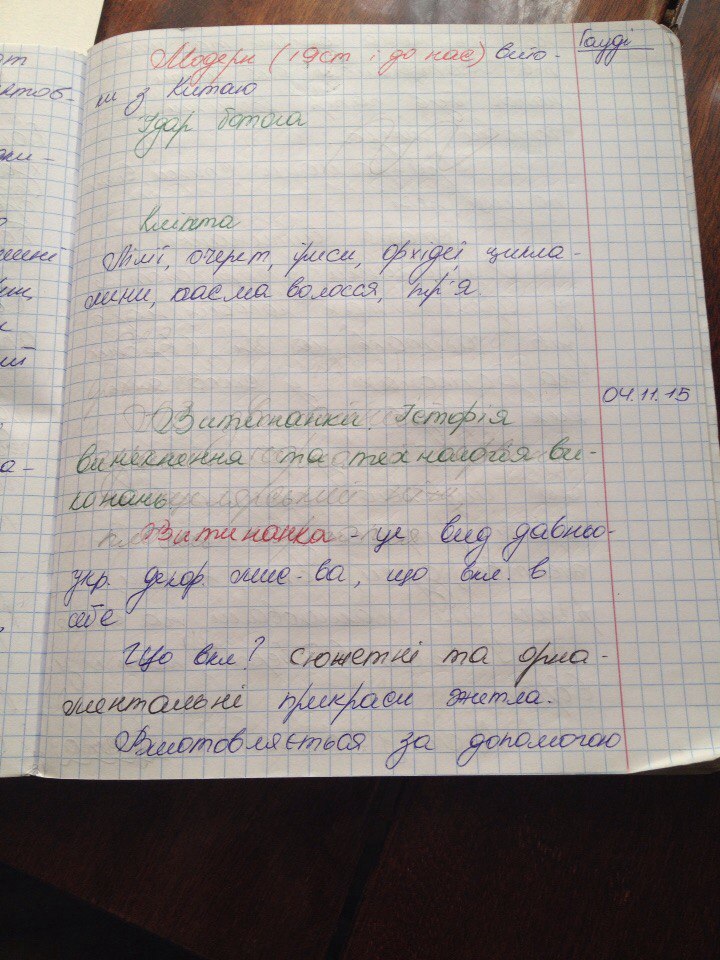 Модерн (19ст і до нас) вито-
Гауді
ки з Китаю
Удар батога
Кліпта
Лілії, очерет, іриси, орхідеї, цикла-
мени, пасма волосся, пір'я.
04.11.15
Витинанка. Історія
виникнення та технологія ви-
конань
Витинанка - це вид давньо-
укр. декор. мис-ва, що вкл. в
себе
Що вкл? сюжетні та орна-
ментальні прикраси житла.
Виготовляється за допомогою